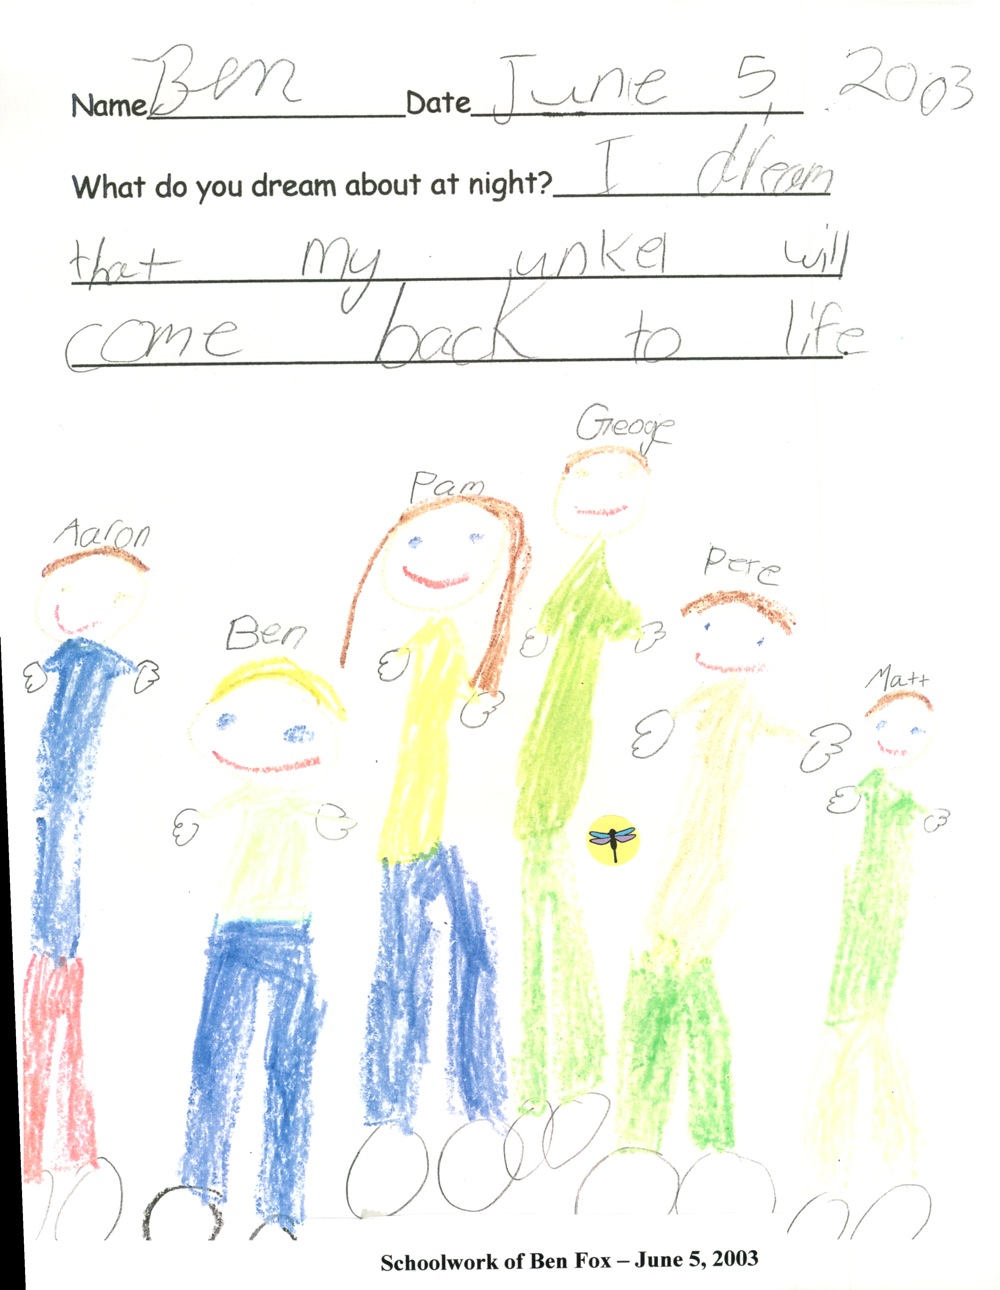 Name Ben Date June 5, 2003
What do you dream about at night? I dream
that my unkel will
come back to life
Geoge
Pam
Aaron
Pete
Ben
Matt
Schoolwork of Ben Fox – June 5, 2003